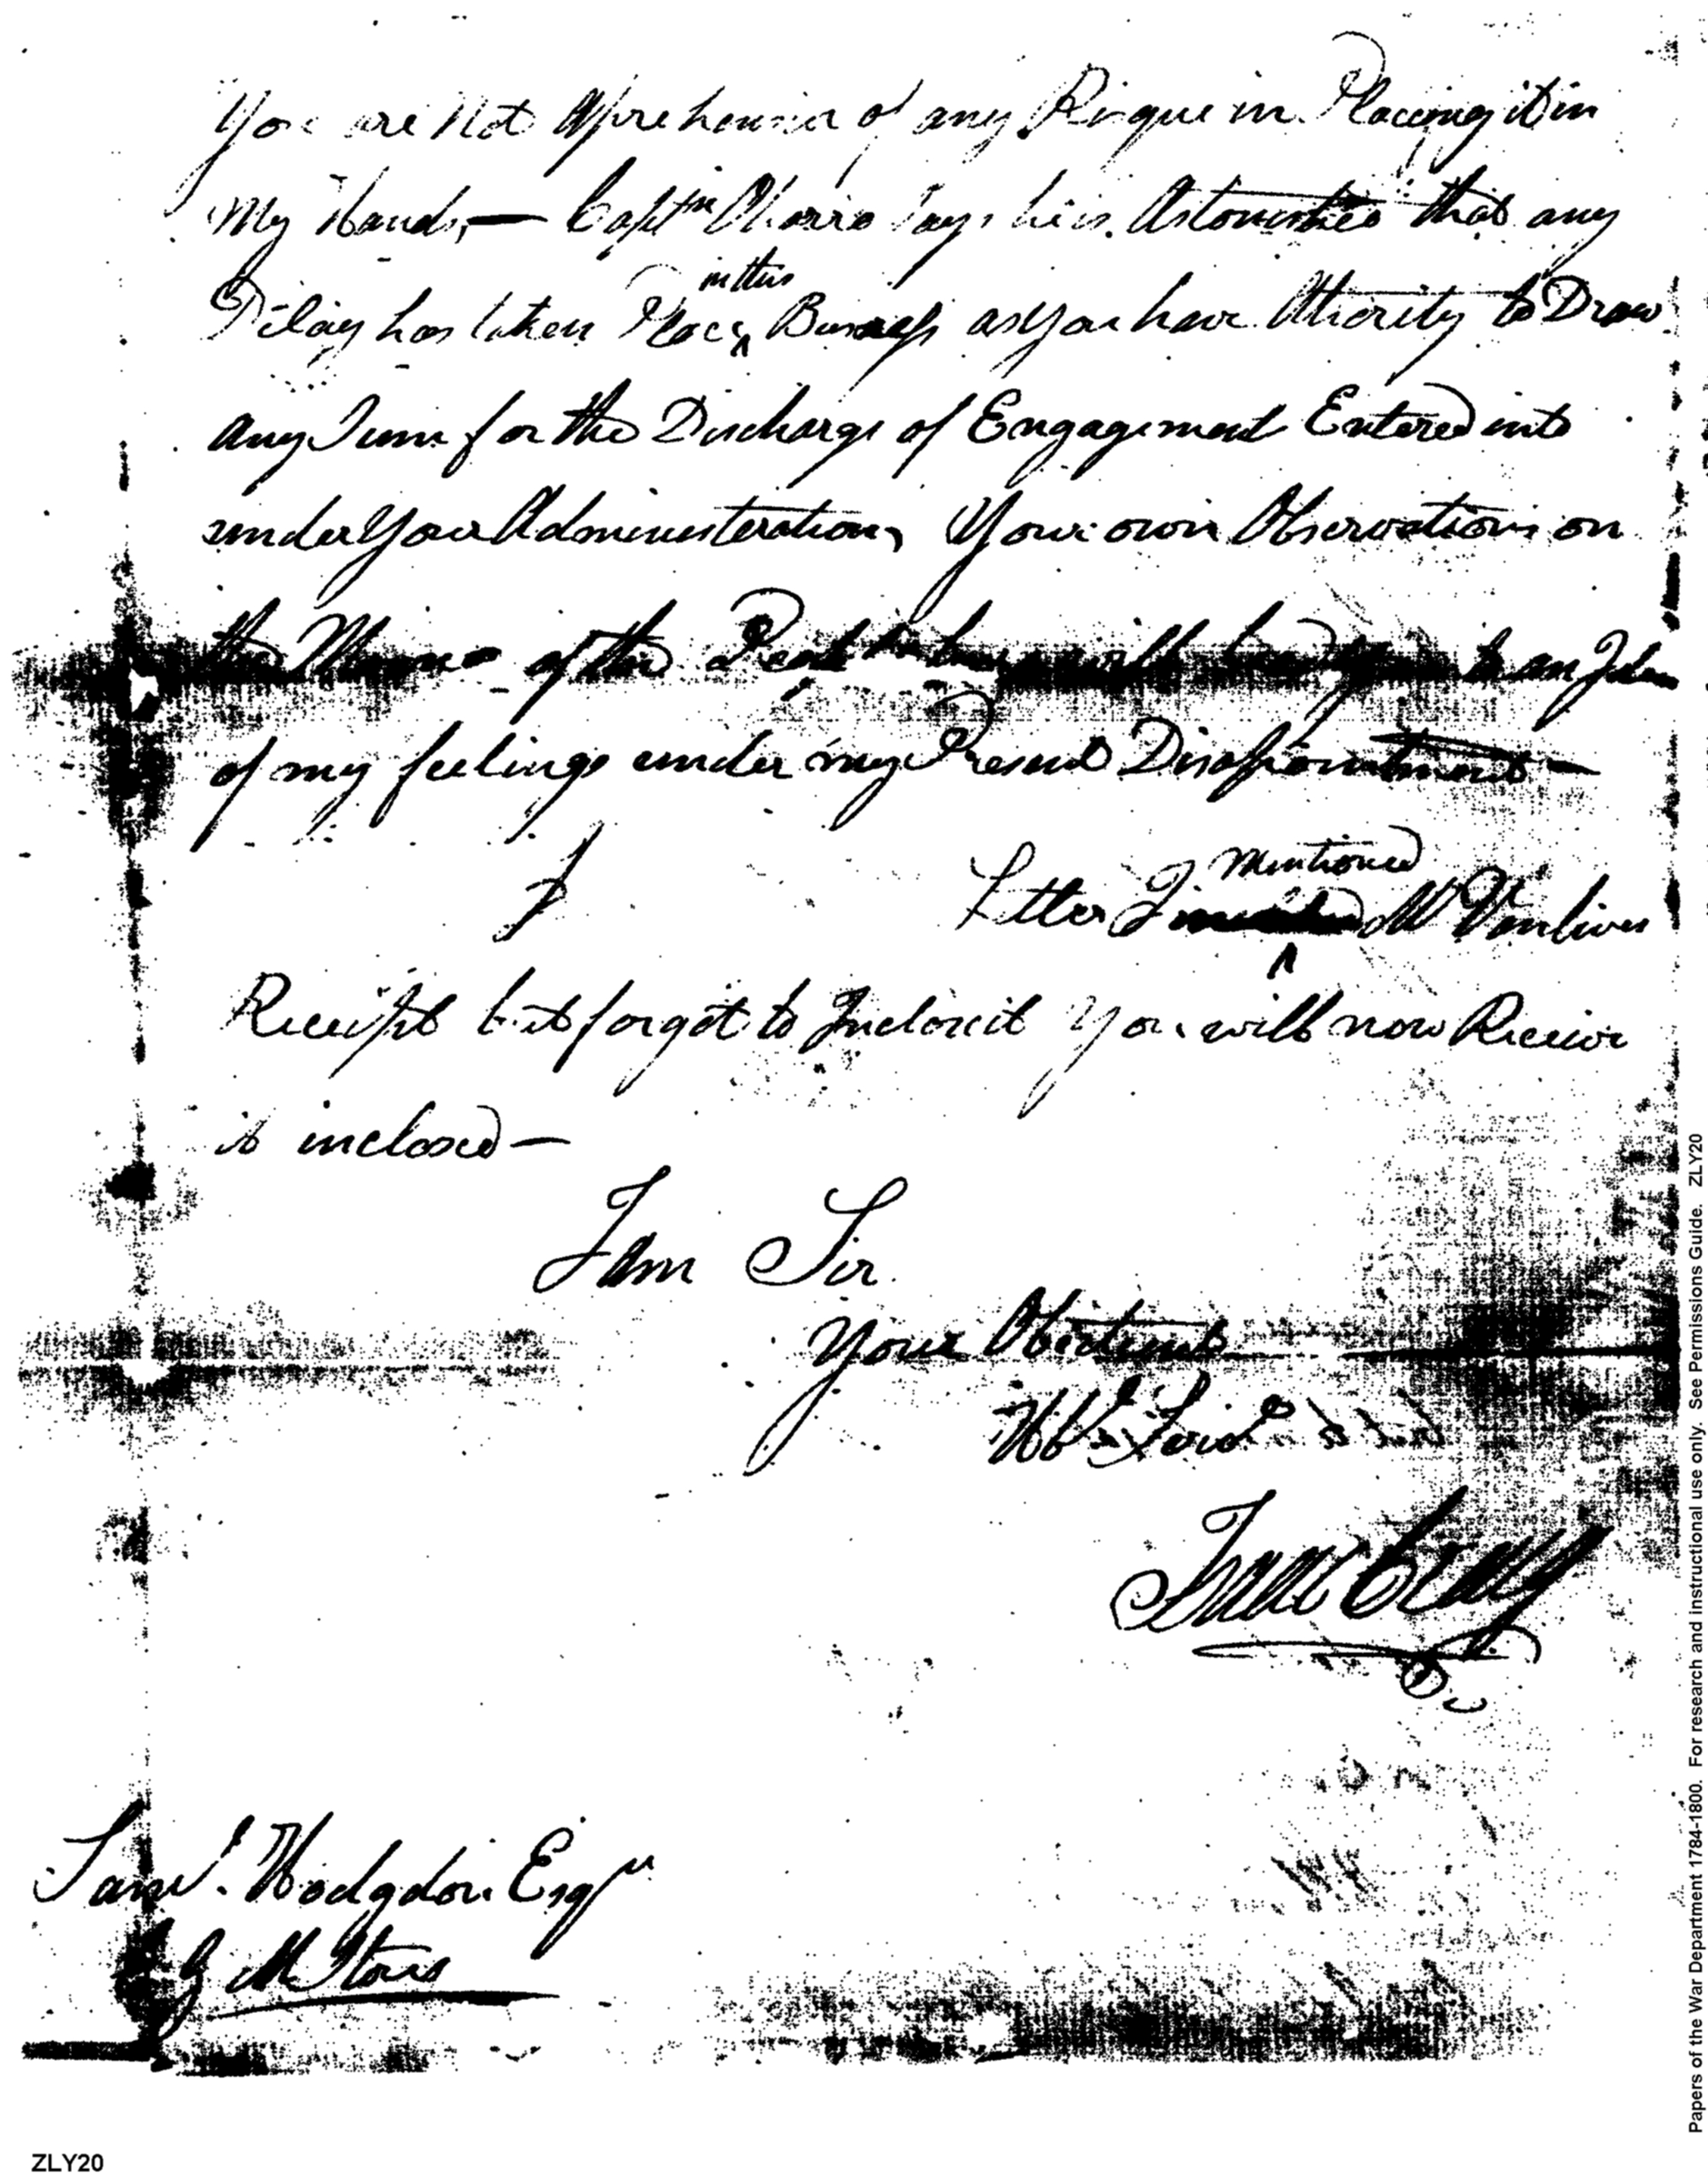 You are Not Aprehensive of any Risque in Placeing it in
My Hands,— Captn OHarra Says he is Astonished that any
Delay has taken Place in this Business as you have Athority to Draw
any Sum for the Discharge of Engagement Entered into
under your Administeration, Your own Observations on
the of the will to an Idea
of my feelings under my Present Disapointment—
Letter I mentioned Mr Vanlives
Receipt but forgot to Inclose it You will now Receive
it inclosed—
I am Sir
Your Obedient
Hble Servt
Isaac Craig
Saml. Hodgdon Esqr
Q M Stores
Papers of the War Department 1784-1800. For research and instructional use only. See Permissions Guide. ZLY20
ZLY20